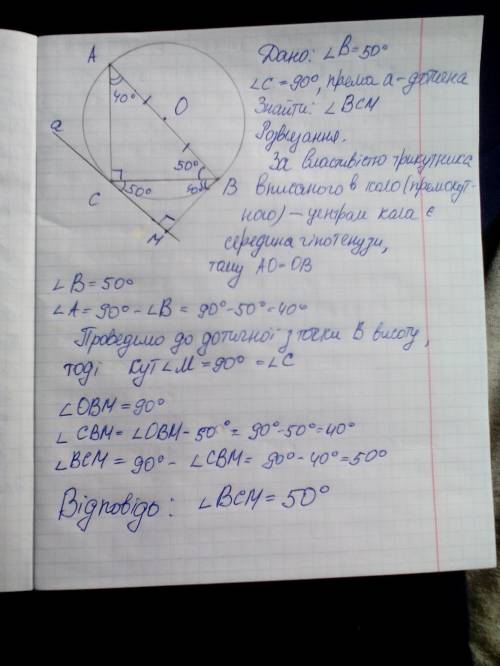 A
40°
O
a
50°
C
50°
40°
B
M
Дано: ∠B=50°
∠C=90°, пряма a - дотична
Знайти: ∠BCM
Розв'язання.
За властивістю трикутника
вписаного в коло (прямокут-
ного) – центром кола є
середина гіпотенузи,
тому AO=OB
∠B=50°
∠A=90°-∠B = 90°-50°=40°
Проведемо до дотичної з точки B висоту,
тоді кут ∠M=90°=∠C
∠OBM=90°
∠CBM=∠OBM-50°=90°-50°=40°
∠BCM = 90°-∠CBM= 90°-40°=50°
Відповідь: ∠BCM=50°